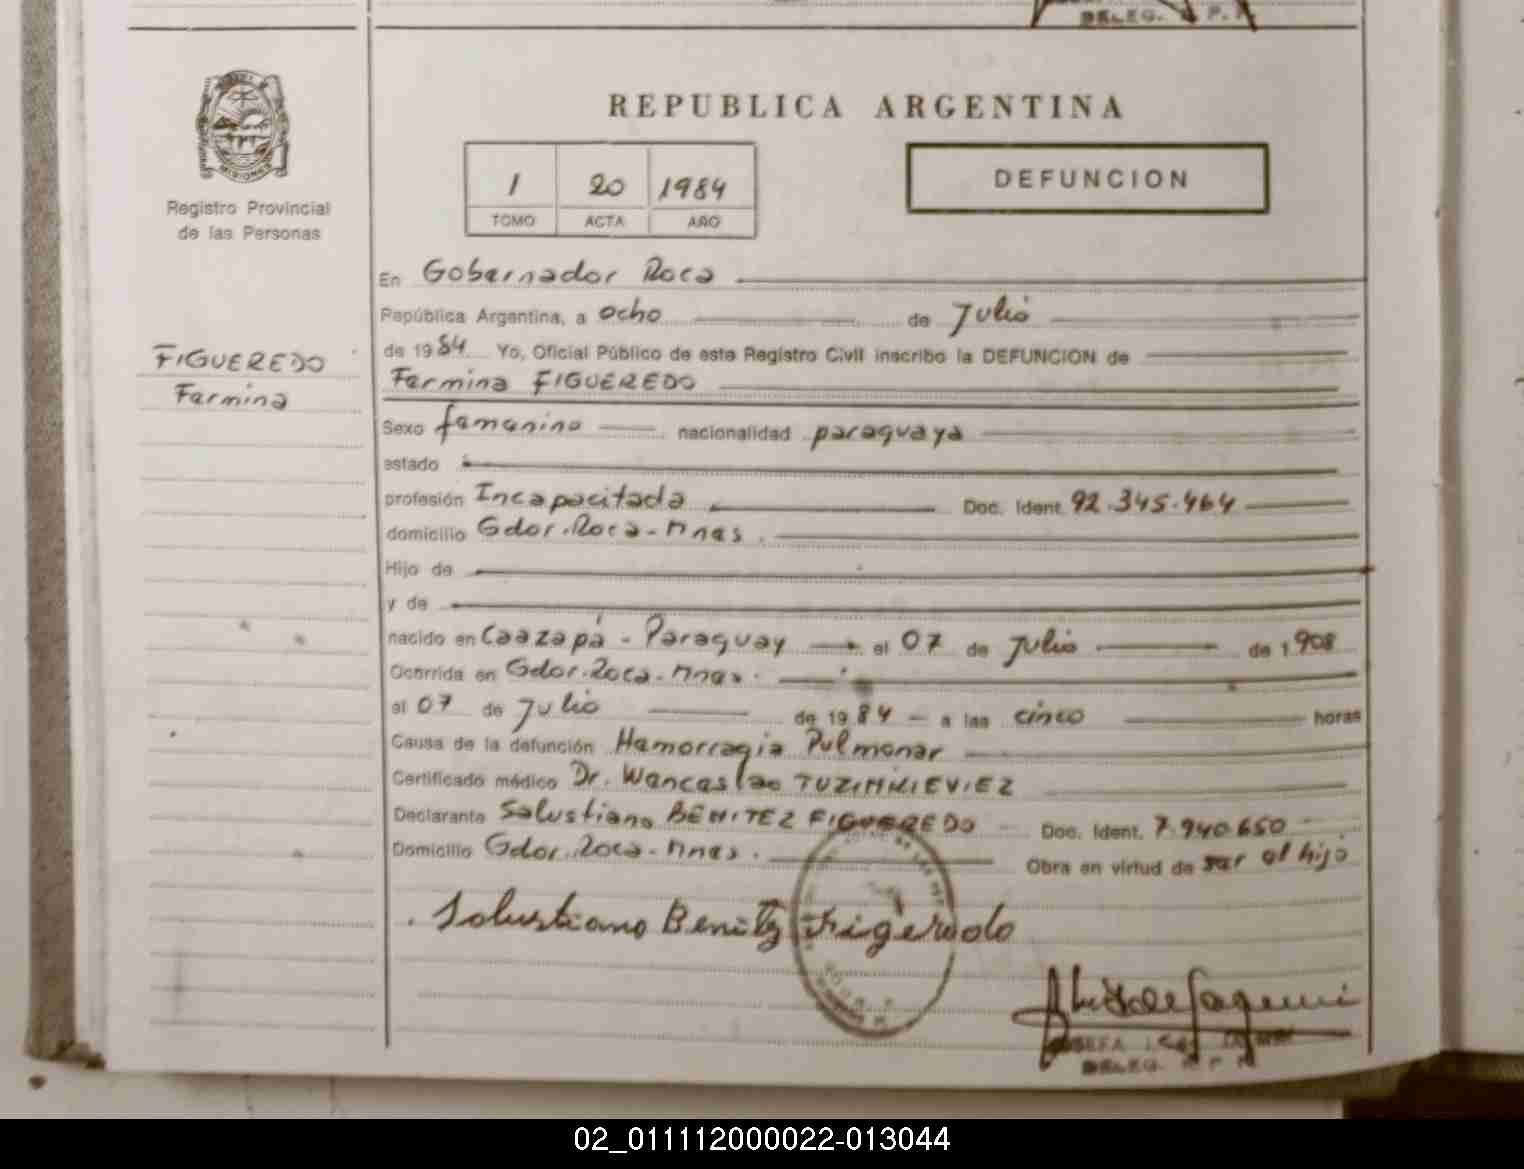 DELEG. R. P. P.
REPUBLICA ARGENTINA
MISIONES
Registro Provincial
de las Personas
1 20 1984
TOMO ACTA AÑO
DEFUNCION
En Gobernador Roca
República Argentina, a ocho de Julio
de 1984 Yo, Oficial Público de este Registro Civil inscribo la DEFUNCION de
FIGUEREDO
Fermina
Fermina FIGUEREDO
Sexo femenino nacionalidad paraguaya
estado
profesión Incapacitada Doc. Ident. 92.345.464
domicilio Gdor. Roca - Mnes.
Hijo de
y de
nacido en Caazapá - Paraguay el 07 de Julio de 1908
Ocurrida en Gdor. Roca - Mnes.
el 07 de Julio de 1984 a las cinco horas
Causa de la defunción Hemorragia Pulmonar
Certificado médico Dr. Wenceslao TUZIMKIEVIEZ
Declarante Salustiano BENITEZ FIGUEREDO Doc. Ident. 7.940.650
Domicilio Gdor. Roca - Mnes. Obra en virtud de ser el hijo
Salustiano Benitez Figeredo
DELEG. R. P. P.
02_011112000022-013044